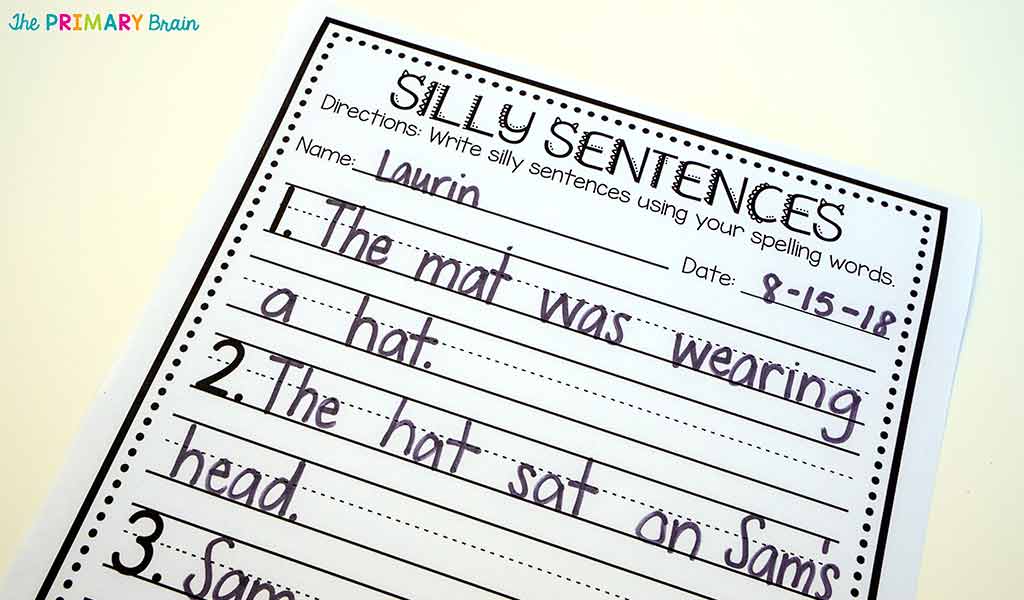 The PRIMARY Brain
SILLY SENTENCES
Directions: Write silly sentences using your spelling words.
Name: Laurin Date: 8-15-18
1. The mat was wearing
a hat.
2. The hat sat on Sam's
head.
3. Sam